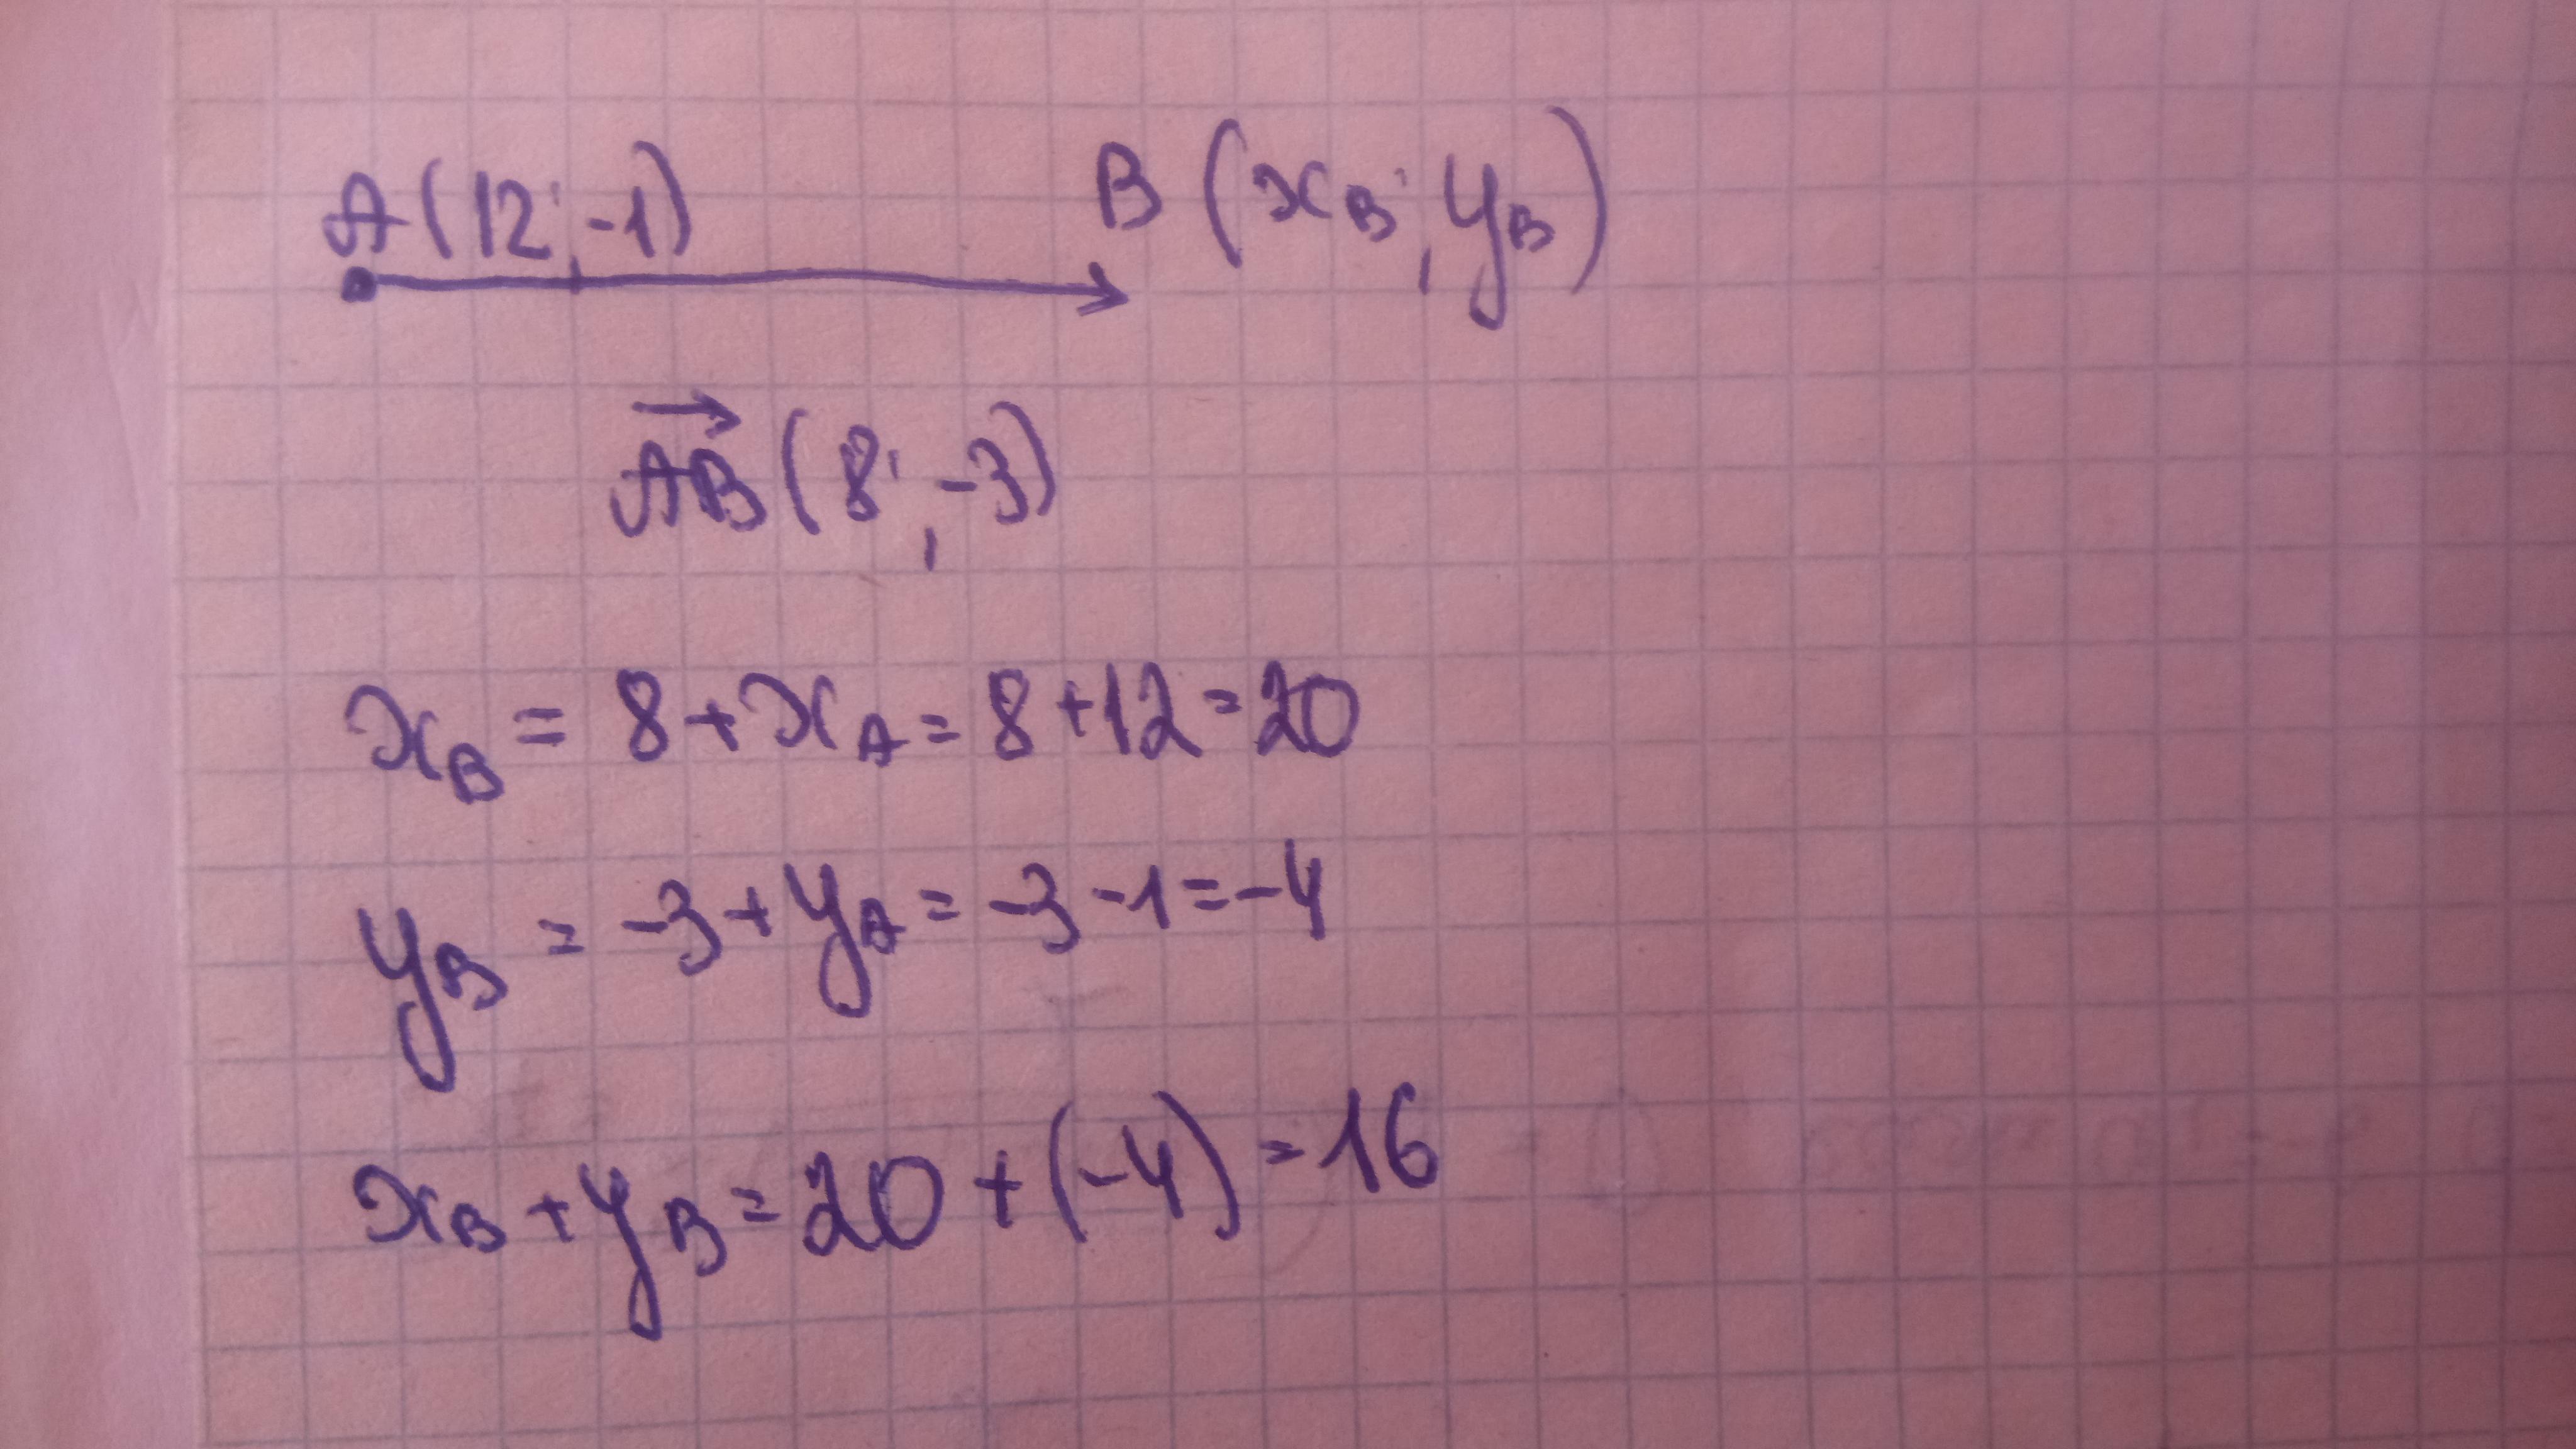 A(12;-1) B(x_B;y_B)
\overrightarrow{AB}(8;-3)
x_B = 8+x_A = 8+12=20
y_B = -3+y_A = -3-1=-4
x_B+y_B=20+(-4)=16